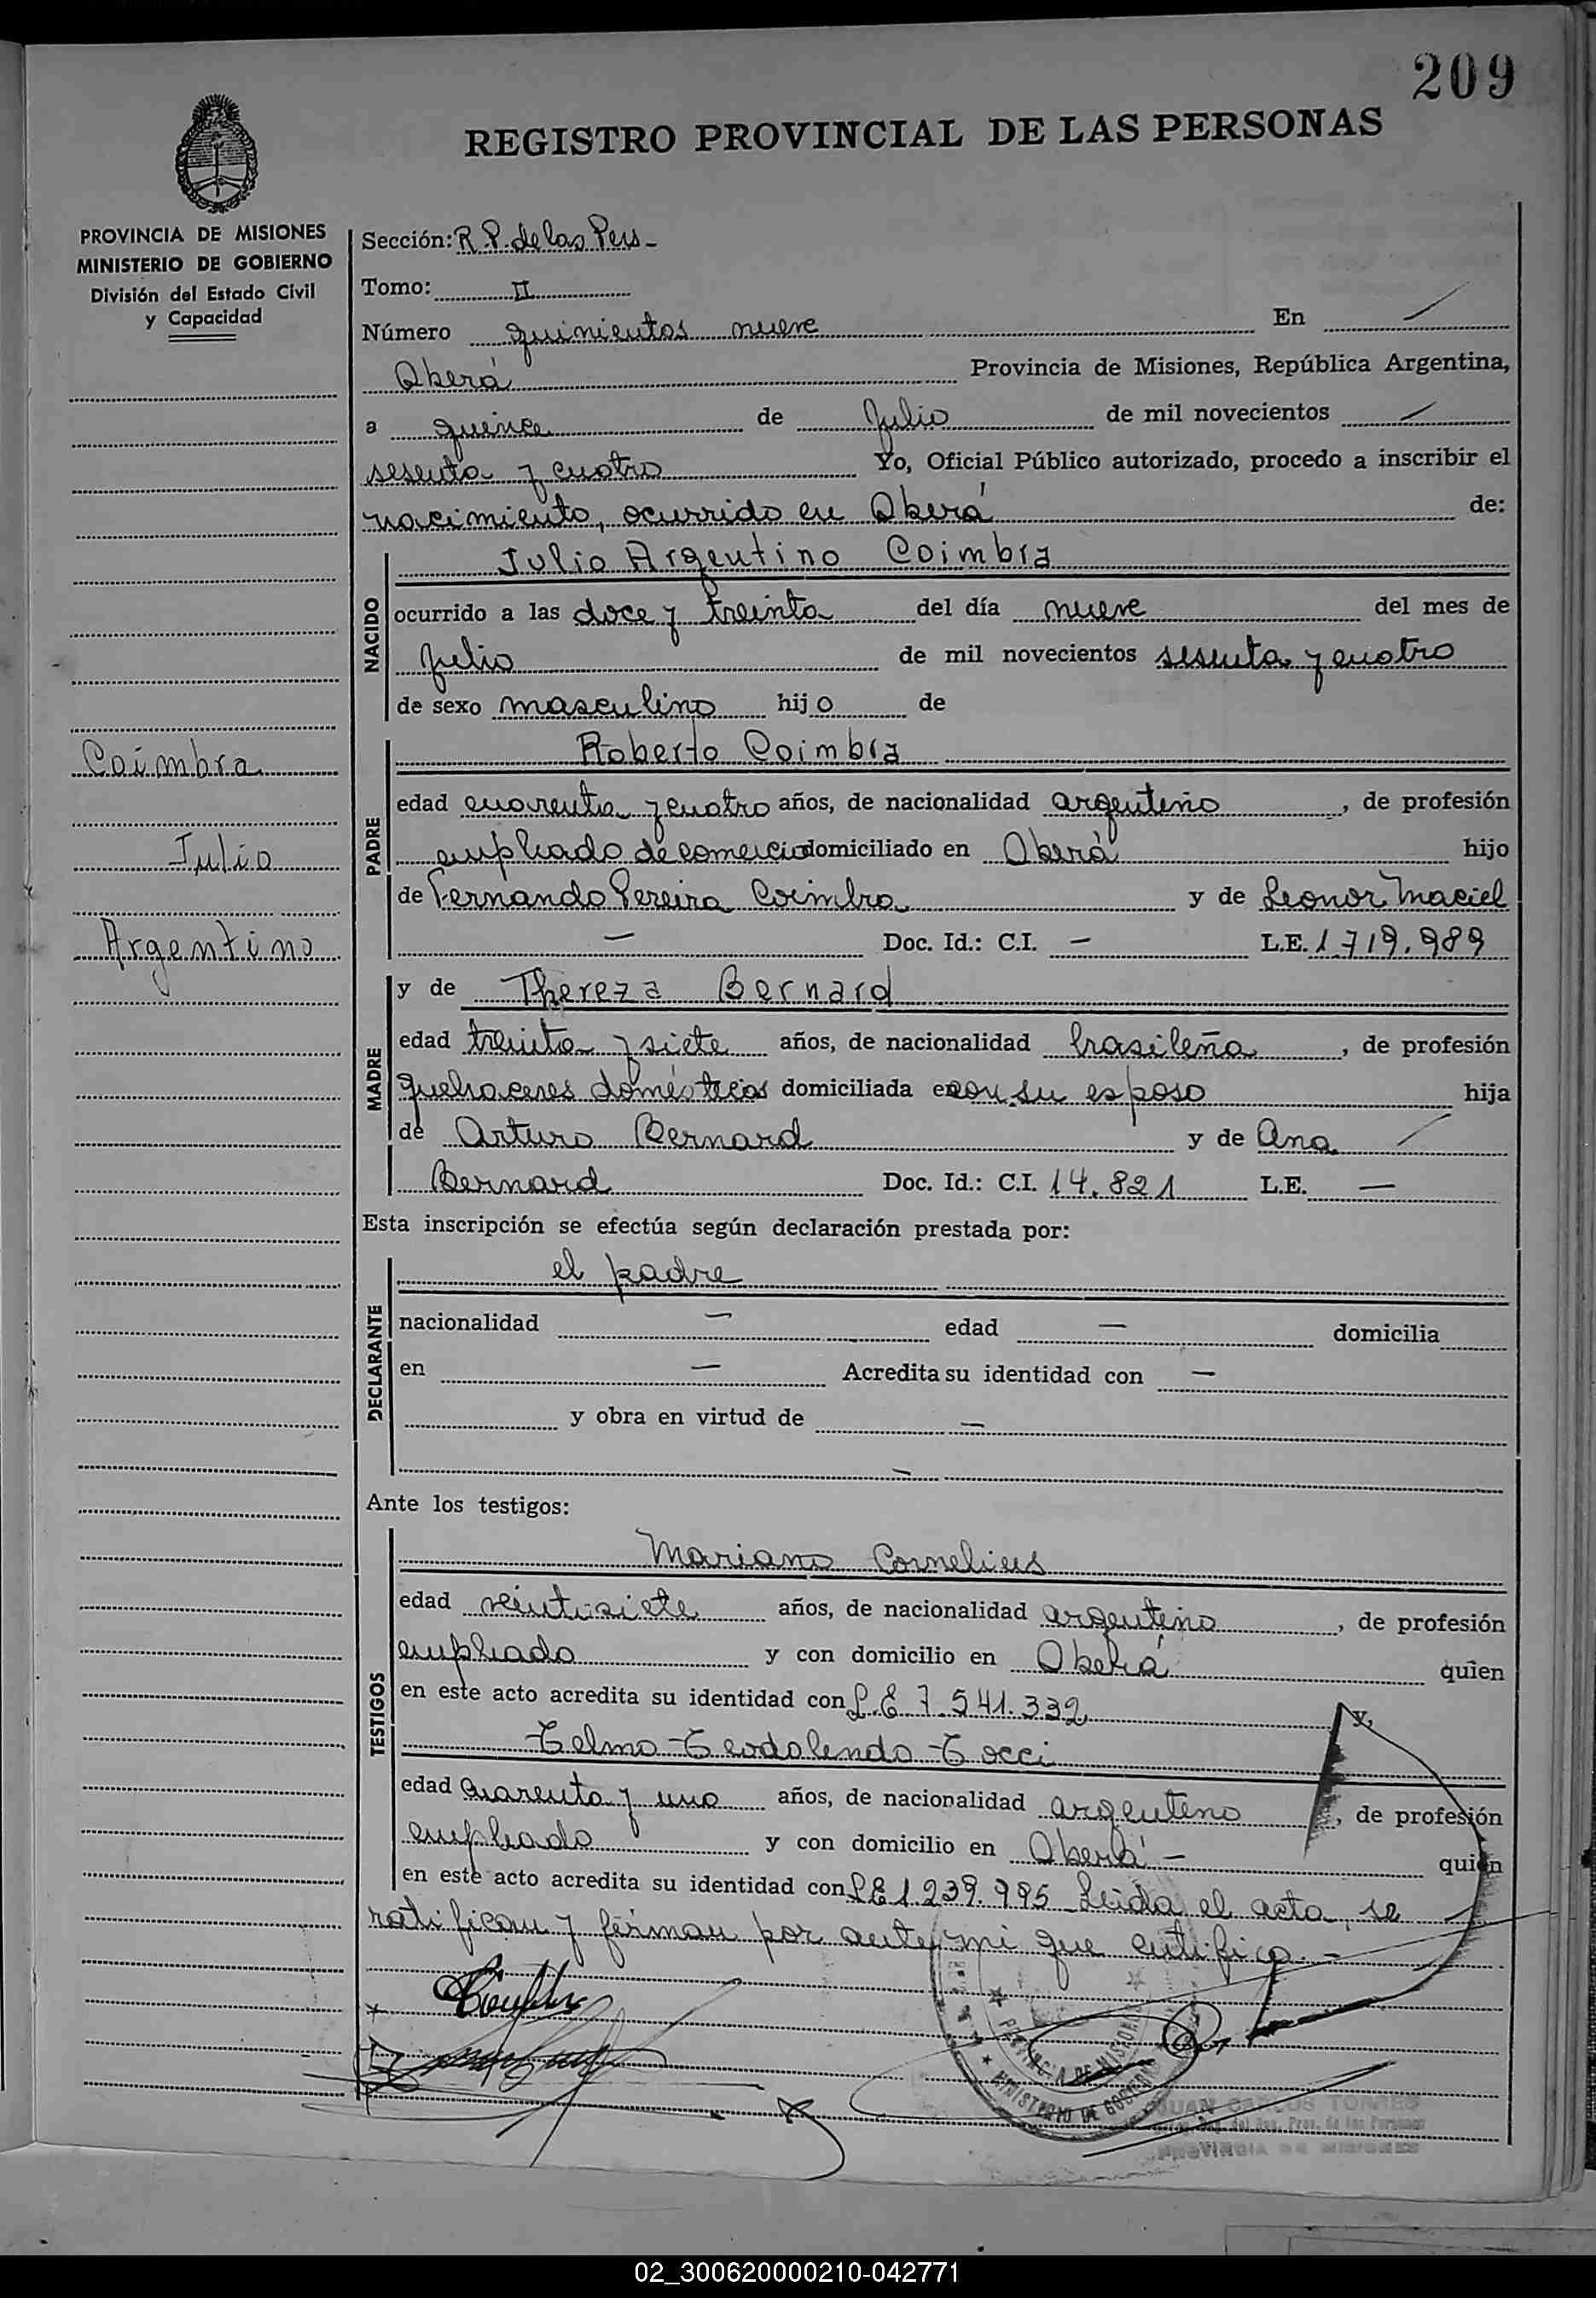 209
REGISTRO PROVINCIAL DE LAS PERSONAS
PROVINCIA DE MISIONES
MINISTERIO DE GOBIERNO
División del Estado Civil
y Capacidad
Coimbra
Julio
Argentino
Sección: R.P. de las Pers -
Tomo: II
Número quinientos nueve En
Oberá Provincia de Misiones, República Argentina,
a quince de Julio de mil novecientos
sesenta y cuatro Yo, Oficial Público autorizado, procedo a inscribir el
nacimiento, ocurrido en Oberá de:
NACIDO
Julio Argentino Coimbra
ocurrido a las doce y treinta del día nueve del mes de
Julio de mil novecientos sesenta y cuatro
de sexo masculino hijo de
PADRE
Roberto Coimbra
edad cuarenta y cuatro años, de nacionalidad argentino, de profesión
empleado de comercio domiciliado en Oberá hijo
de Fernando Pereira Coimbra y de Leonor Maciel
— Doc. Id.: C.I. — L.E. 1.719.989
MADRE
y de Thereza Bernard
edad treinta y siete años, de nacionalidad brasileña, de profesión
quehaceres domésticos domiciliada en con su esposo hija
de Arturo Bernard y de Ana
Bernard Doc. Id.: C.I. 14.821 L.E. —
Esta inscripción se efectúa según declaración prestada por:
DECLARANTE
el padre
nacionalidad — edad — domicilia
en — Acredita su identidad con —
y obra en virtud de —
—
Ante los testigos:
TESTIGOS
Mariano Cornelius
edad veintisiete años, de nacionalidad argentino, de profesión
empleado y con domicilio en Oberá quien
en este acto acredita su identidad con L.E 7.541.332 y,
Telmo Teodolendo Tocci
edad cuarenta y uno años, de nacionalidad argentino, de profesión
empleado y con domicilio en Oberá - quién
en este acto acredita su identidad con L E 1.239.995 Leida el acta, se
ratifican y firman por ante mi que certifico. -
PROVINCIA DE MISIONES
MINISTERIO DE GOBIERNO
JUAN CARLOS TORRES
del Reg. Prov. de las Personas
PROVINCIA DE MISIONES
02_300620000210-042771